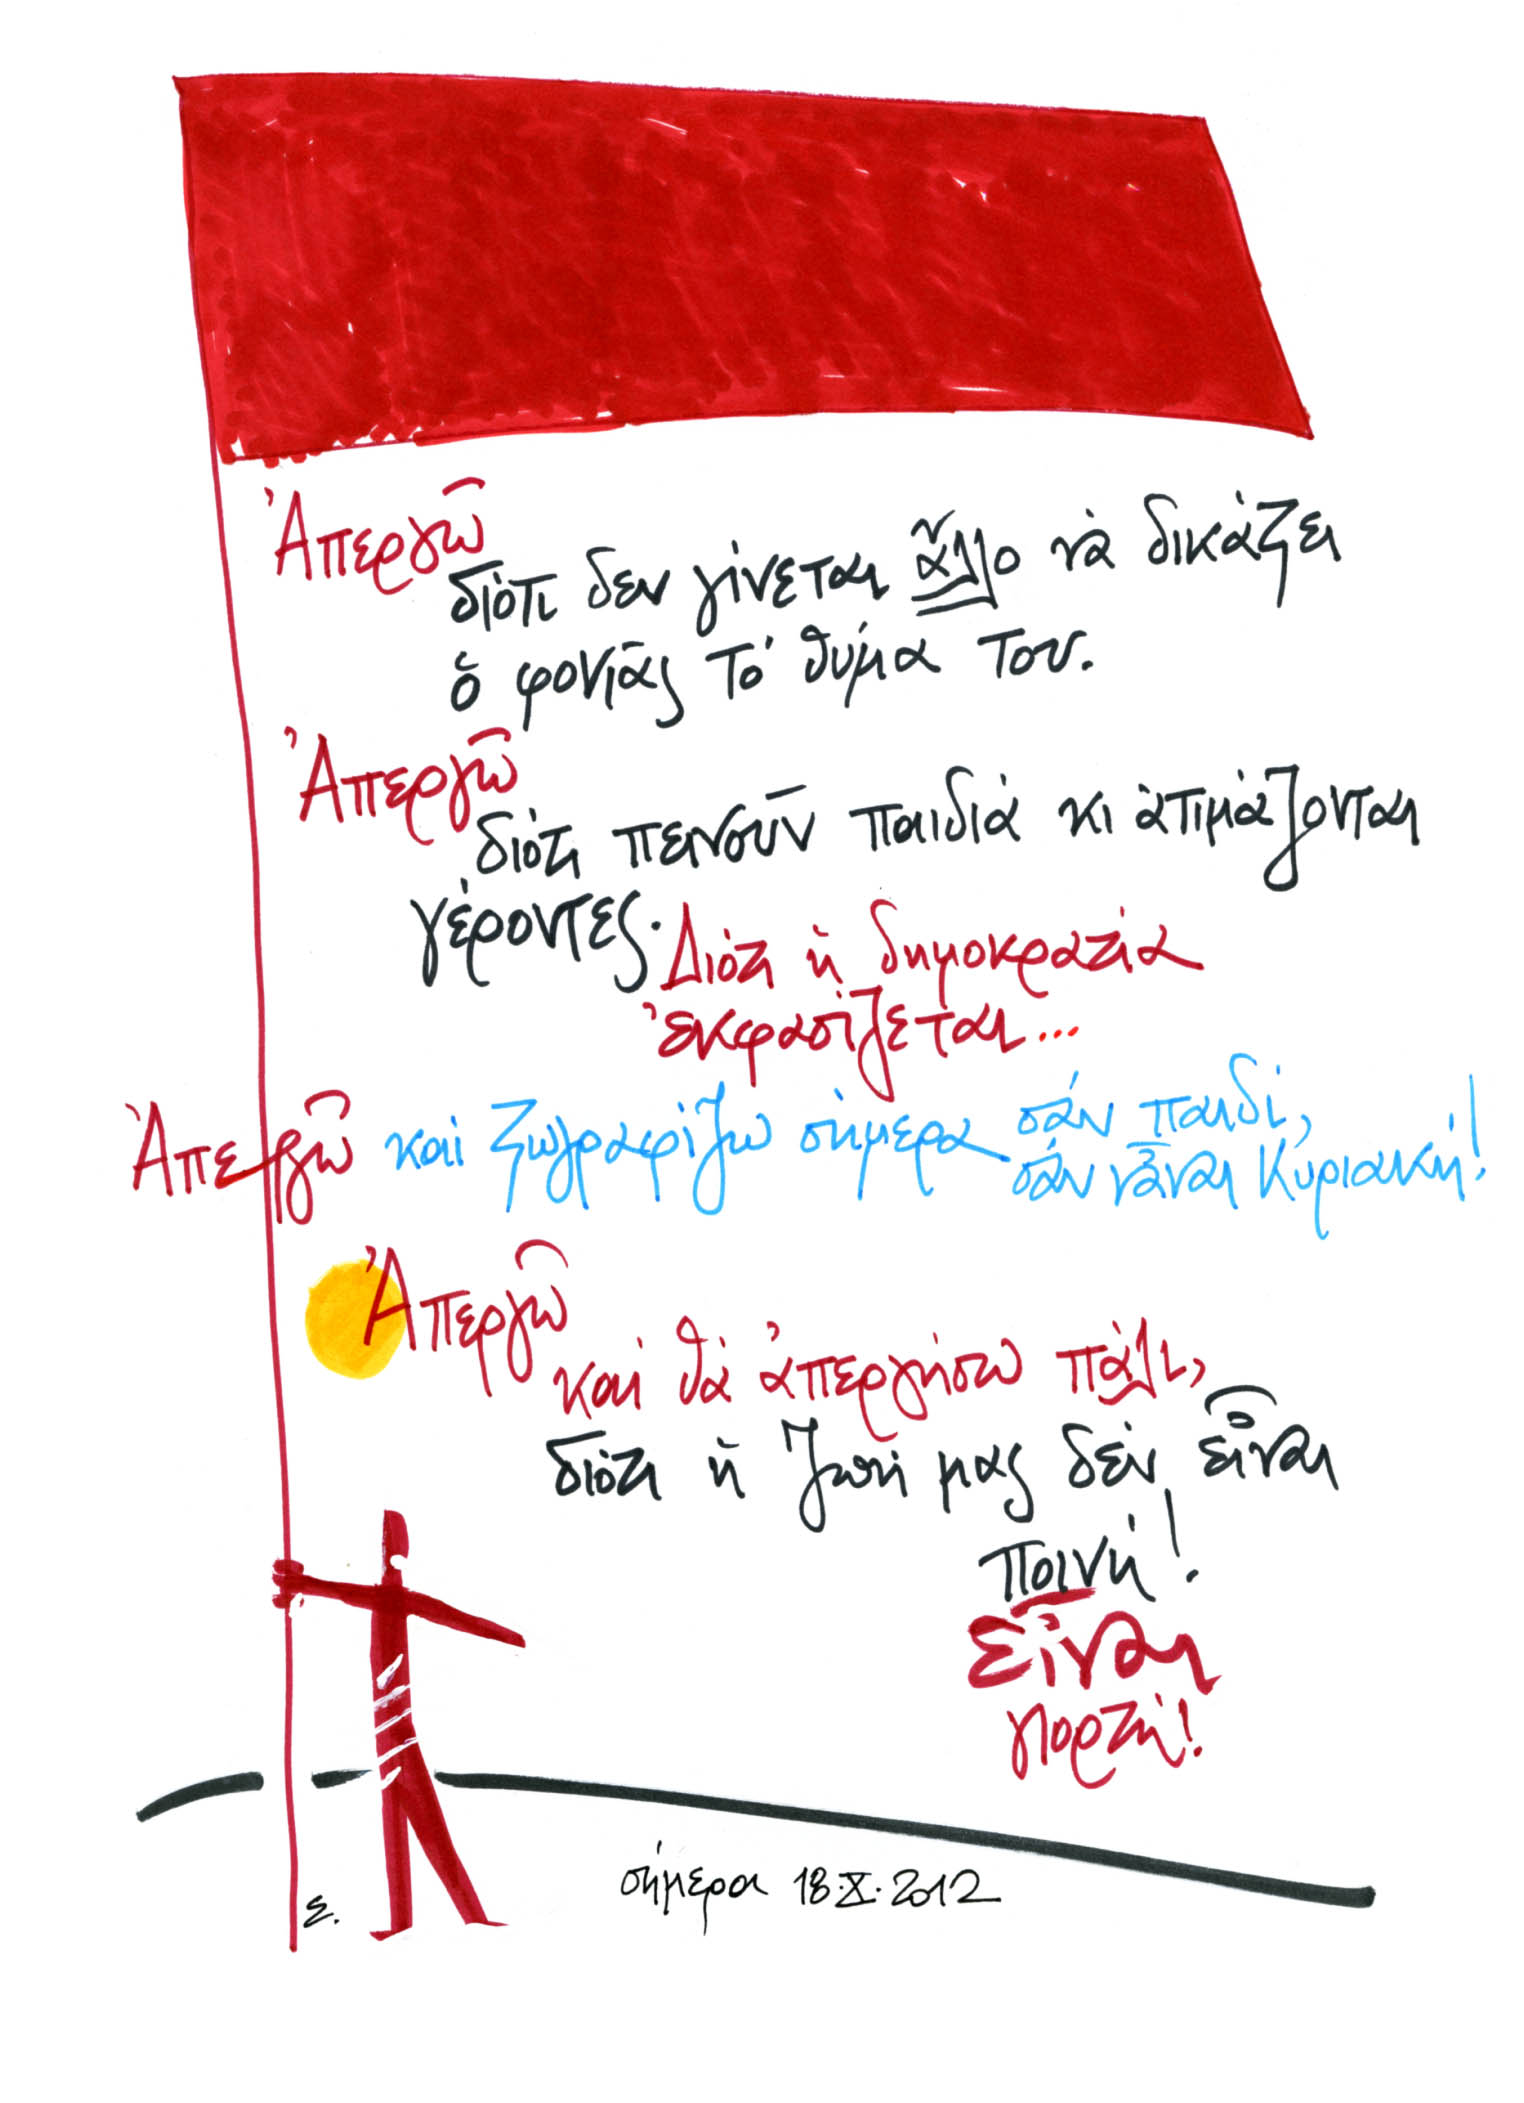 Ἀπεργῶ
διότι δεν γίνεται ἄλλο νὰ δικάζει
ὁ φονιᾶς τό θύμα του.
Ἀπεργῶ
διότι πεινοῦν παιδιά κι ἀτιμάζονται
γέροντες. Διότι ἡ δημοκρατία
ἐκφασίζεται...
Ἀπεργῶ καί ζωγραφίζω σήμερα σάν παιδί,
σάν νἆναι Κυριακή!
Ἀπεργῶ
καί θά ἀπεργήσω πάλι,
διότι ἡ ζωή μας δέν εἶναι
ποινή!
εἶναι
γιορτή!
Σ.
σήμερα 18·Χ·2012